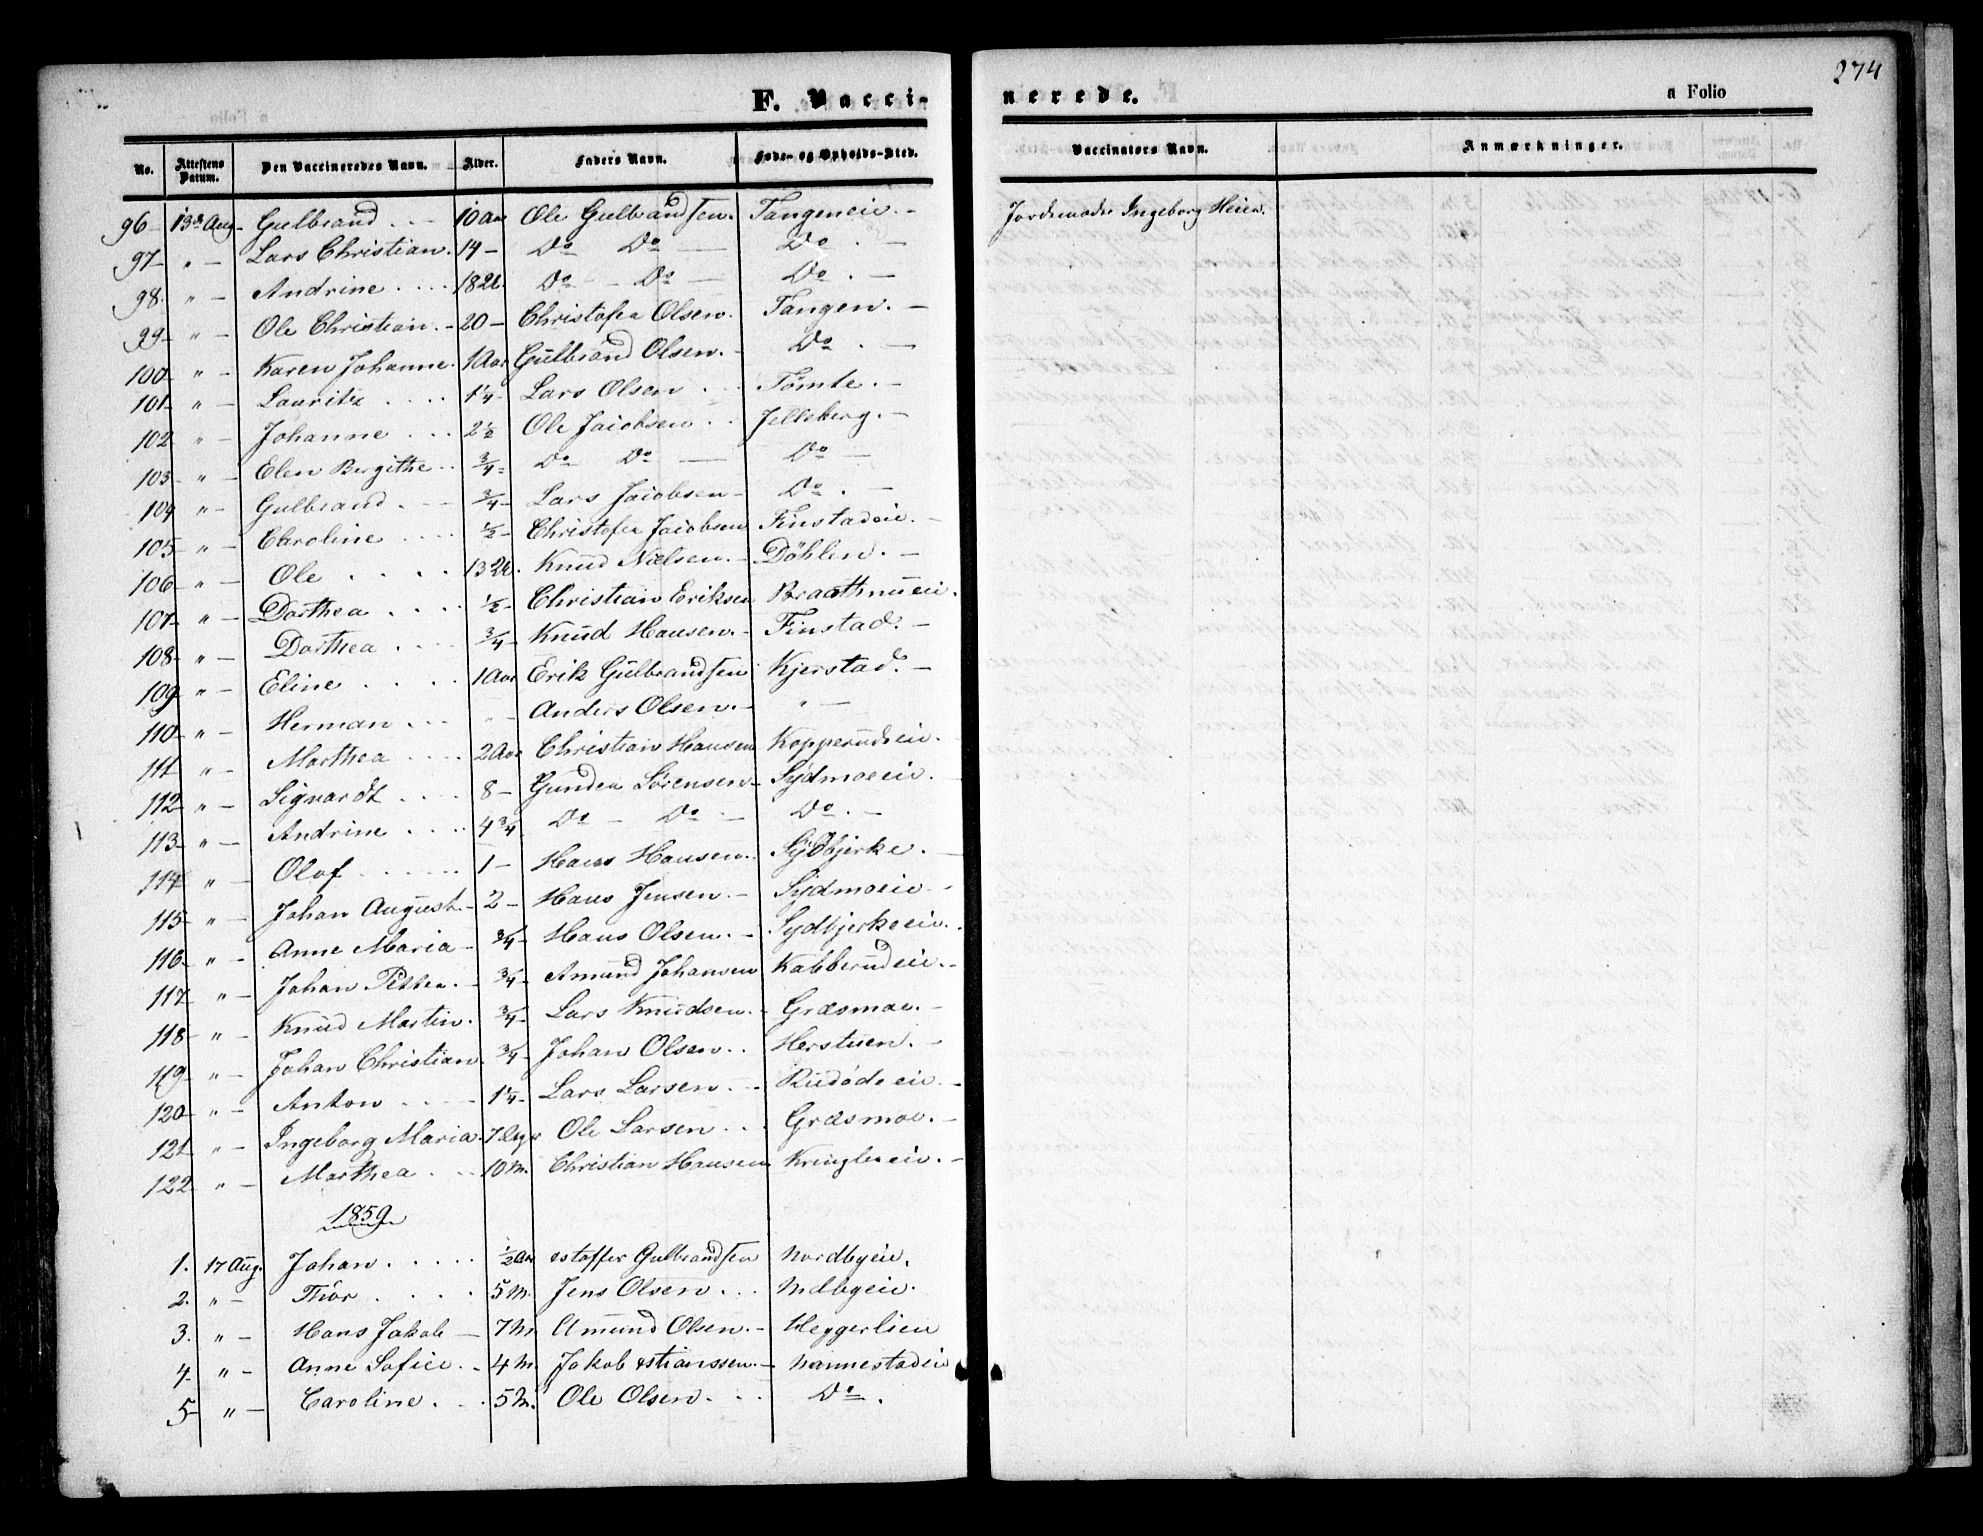 274
F. Vacci-nerede.
a Folio
No. Attestens Datum. Den Vaccineredes Navn. Alder. Faders Navn. Føde- og Opholds-Sted. Vaccinators Navn. Anmærkninger.
96 13de Aug. Gulbrand 10 Aar Ole Gulbrandsen. Tangeneie. Jordemoder Ingeborg Heien.
97 " Lars Christian. 14 Do Do Do
98. " Andrine 18 Do Do Do
99 " Ole Christian. 20 Christofer Olsen. Tangen.
100 " Karen Johanne. 1 Aar Gulbrand Olsen. Do
101 " Lauritz 1¼ Lars Olsen Tømte.
102 " Johanne 2½ Ole Jacobsen Jelleberg.
103 " Elen Bergithe ¾ Do Do Do
104 " Gulbrand ¾ Lars Jacobsen Do
105 " Caroline ½ Christofer Jacobsen Finstadeie.
106 " Ole 13 Knud Nielsen. Döhlen.
107 " Dorthea ½ Christian Eriksen
108 " Dorthea ¾ Knud Hansen. Finstad.
109 " Eline 1 Aar Erik Gulbrandsen Kjerstad.
110 " Herman " Anders Olsen. "
111 " Marthea 2 Aar Christian Hansen Kopperudeie.
112 " Sigvardt 8 Gunder Sørensen Sydmoeeie.
113 " Andrine 4¾ Do Do Do.
114 " Olof 1 Hans Hansen. Sydbjerke.
115 " Johan August 2 Hans Jensen. Sydmoeie
116 " Anne Maria ¾ Hans Olsen. Sydbjerkeeie.
117 " Johan Petter. ¾ Amund Johansen Kabberudeie.
118 " Knud Martin. ¾ Lars Knudsen. Græsmoe.
119 " Johan Christian. ¾ Johan Olsen. Herstuen.
120 " Anton 1¼ Lars Larsen
121 " Ingeborg Maria. 7 Ole Larsen Græsmoe.
122 " Marthea 10 M. Christian Hansen Kringlereie.
1859
1. 17 Aug. Johan ½ Aar stoffer Gulbrandsen Nordbyeie.
2. " Thor 5 M. Jens Olsen
3. " Hans Jakob 7 M. Amund Olsen. Heggerlien
4. " Anne Sofie. 4 M. Jakob stianssen. Nannestadeie
5 " Caroline. 5 M. Ole Olsen. Do.